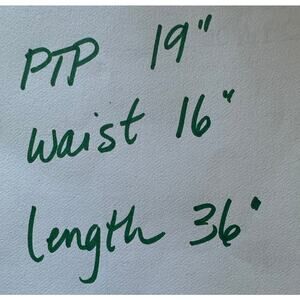 PTP 19"
Waist 16"
length 36"